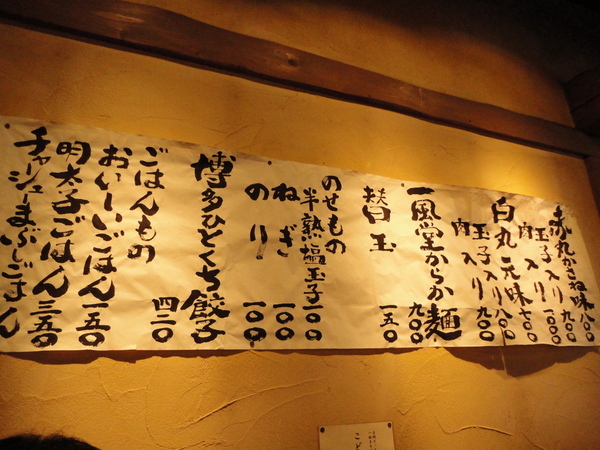 赤丸かさね味 八〇〇
玉子入り 九〇〇
肉入り 一〇〇〇
白丸元味 七〇〇
玉子入り 八〇〇
肉入り 九〇〇
一風堂からか麺 九〇〇
替玉 一五〇
のせもの
半熟塩玉子 一〇〇
ねぎ 一〇〇
のり 一〇〇
博多ひとくち餃子 四二〇
ごはんもの
おいしいごはん 一五〇
明太子ごはん 三五〇
チャーシューまぶしごはん